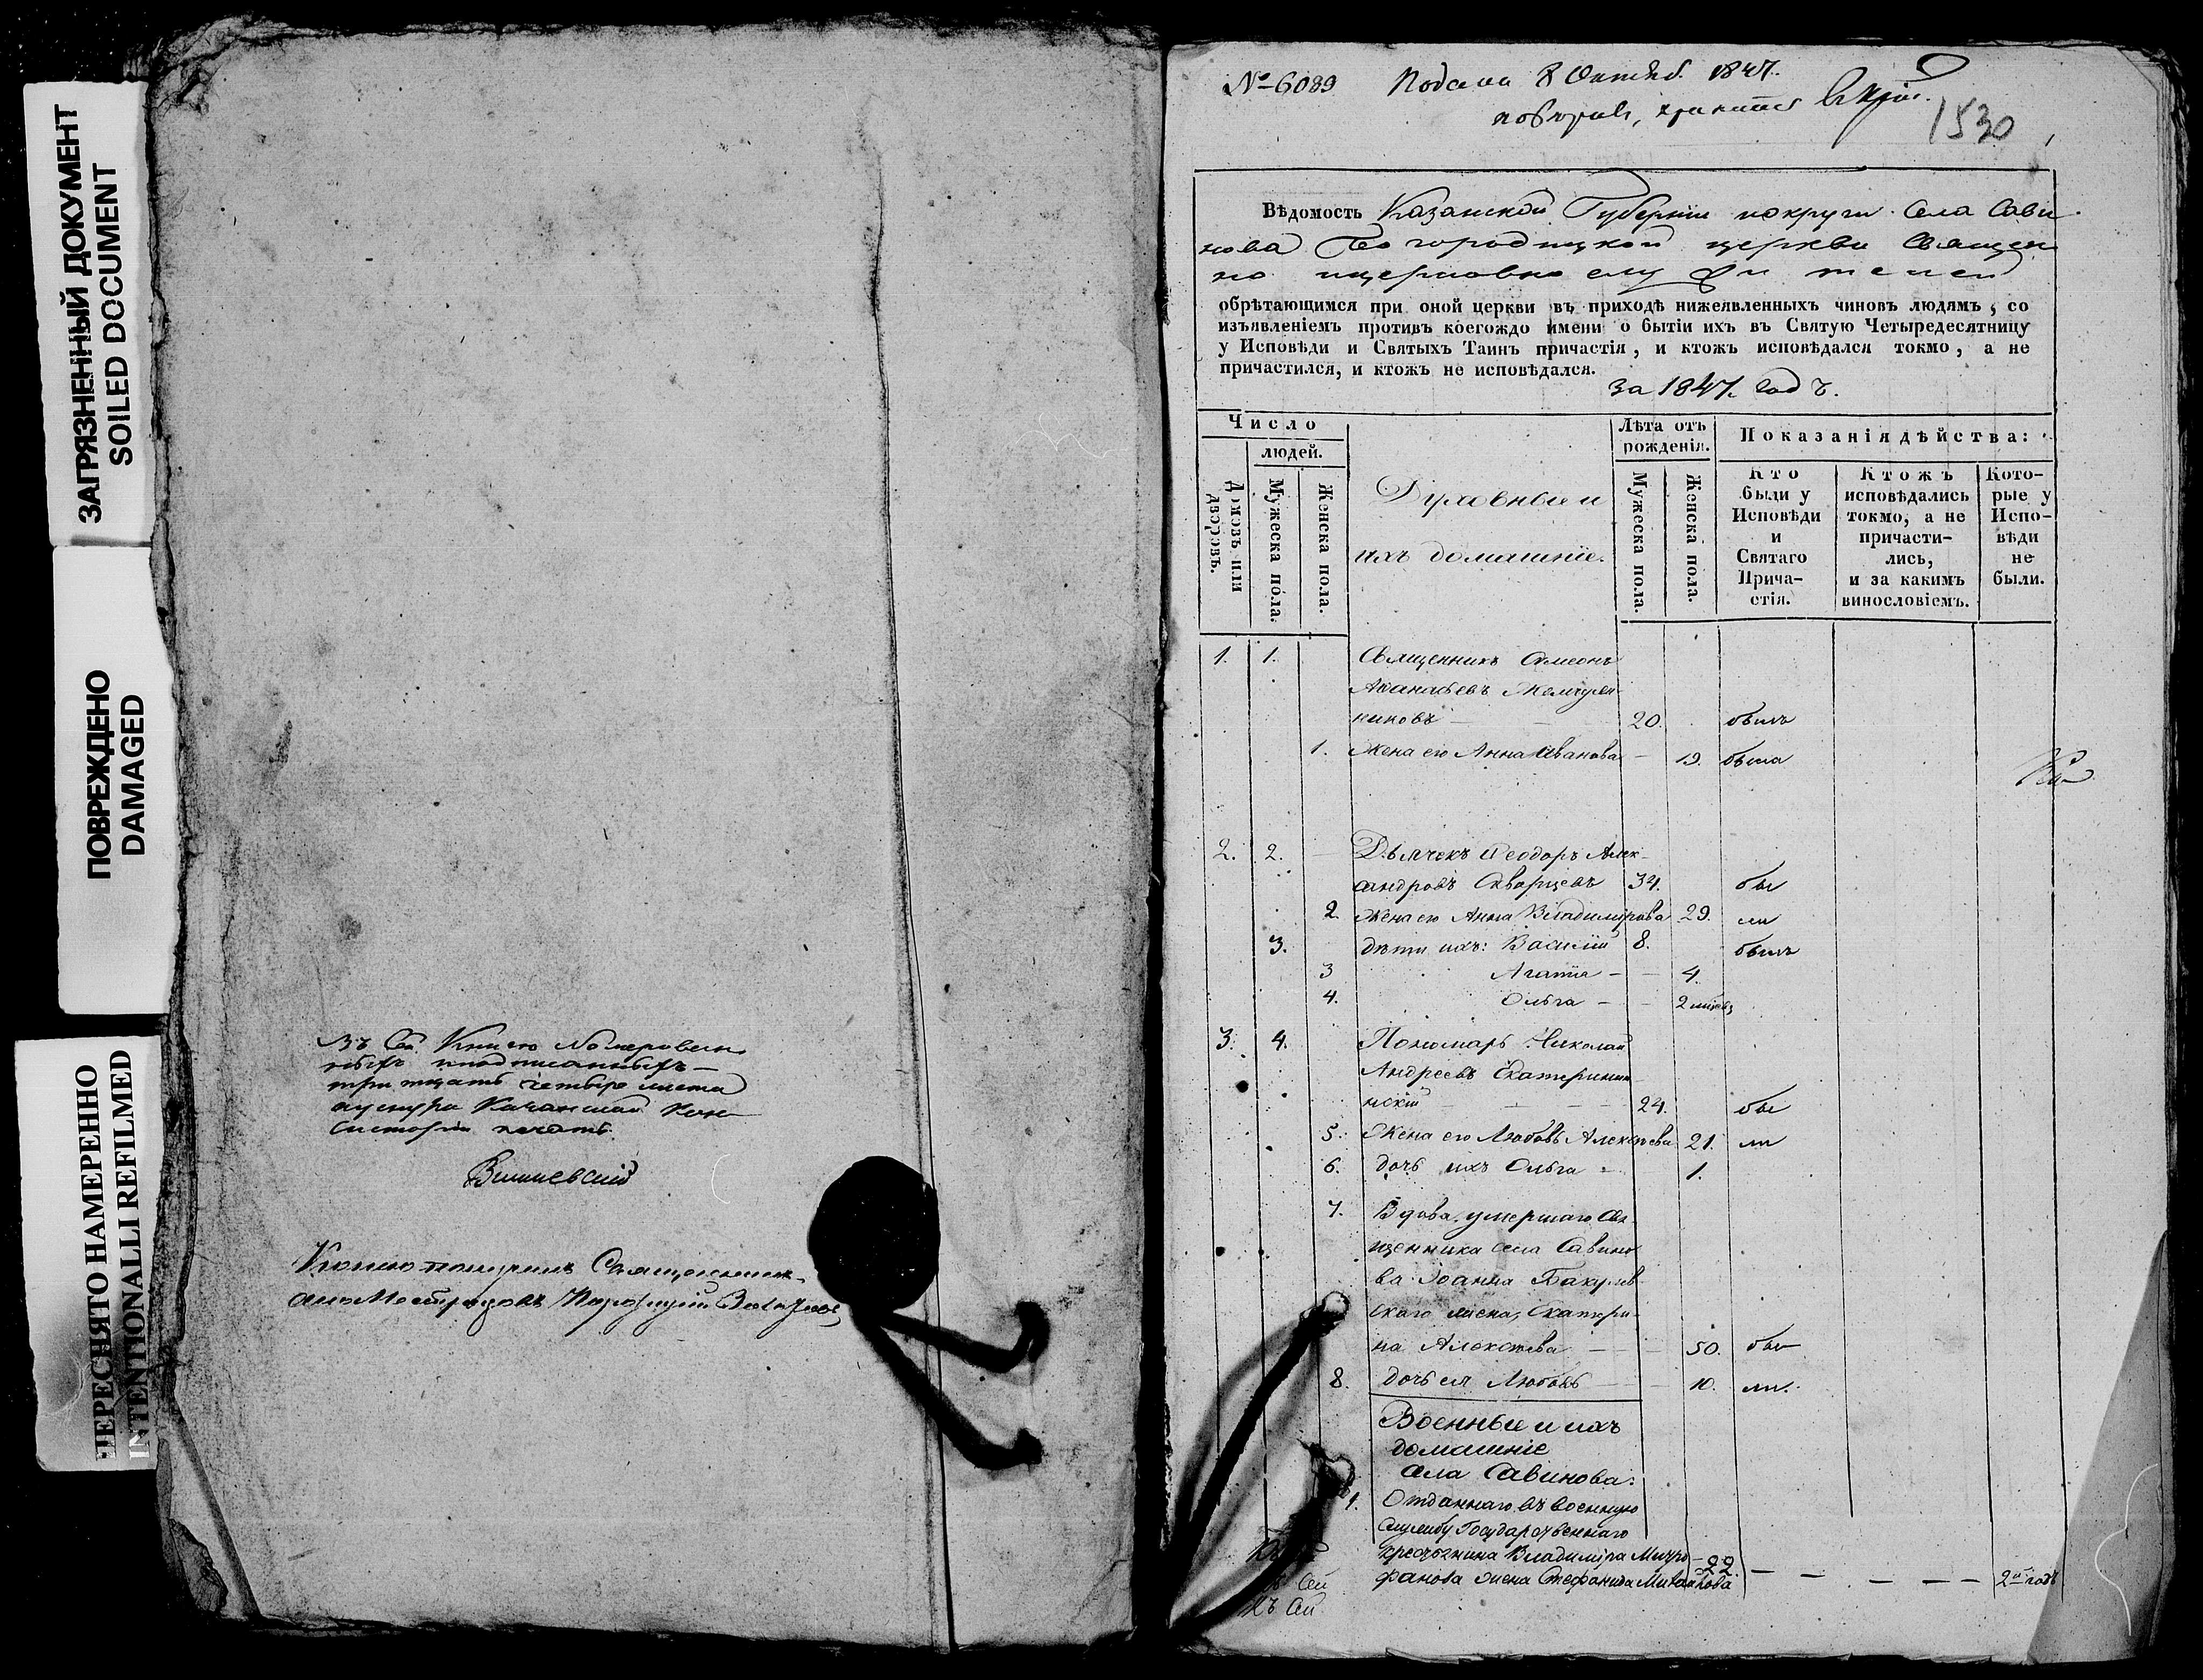 ЗАГРЯЗНЕННЫЙ ДОКУМЕНТ
SOILED DOCUMENT
ПОВРЕЖДЕНО
DAMAGED
ПЕРЕСНЯТО НАМЕРЕННО
INTENTIONALLI REFILMED
Въ Сей Книгѣ
тритцать четыре листа
Казанской Кон
систоріи печать.
Вишневскій
№ 6089 Подана 8 Октяб. 1847.
1530
Вѣдомость Казанской Губерніи и округи Села Сави
нова Богородицкой церкви Священ
но
обрѣтающимся при оной церкви въ приходѣ нижеявленныхъ чиновъ людямъ, со
изъявленіемъ противъ коегождо имени о бытіи ихъ въ Святую Четыредесятницу
у Исповѣди и Святыхъ Таинъ причастія, и ктожъ исповѣдался токмо, а не
причастился, и ктожъ не исповѣдался.
за 1847. годъ.
Число
людей.
Домовъ или дворовъ.
Мужеска пола.
Женска пола.
Духовные и
ихъ домашніе.
Лѣта отъ
рожденія.
Мужеска пола.
Женска пола.
Показанія дѣйства:
Кто
были у
Исповѣди
и
Святаго
Прича-
стія.
Ктожъ
исповѣдались
токмо, а не
причасти-
лись,
и за какимъ
винословіемъ.
Кото-
рые у
Испо-
вѣди
не
были.
1. 1. Священникъ Симеонъ
Аѳанасьевъ Жемчуж
никовъ — 20. былъ
1. Жена его Анна Иванова — 19. была
2. 2. — Дьячекъ Ѳеодоръ Алек-
сандровъ Скворцевъ 34. бы
2. Жена его Анна Владимірова 29. ли
3. дѣти ихъ: Василій 8. былъ
3 Агапія — 4.
4. Ольга — 2 мѣсяц
3. 4. Пономарь Николай
Андреевъ Екатеринин
скій — 24. бы
5. Жена его Любовь Алексѣева 21. ли
6. дочь ихъ Ольга — 1.
7. Вдова умершаго Свя
щенника села Савино
ва Іоанна Бакулев
скаго жена, Екатери
на Алексѣева — 50. бы
8. дочь ея Любовь — 10. ли.
Военные и ихъ
домашніе
села Савинова:
1. Отданнаго въ военную
службу Государственнаго
крестьянина Владиміра Митро
фанова жена Стефанида Михайлова 22. — — — — 2й годъ